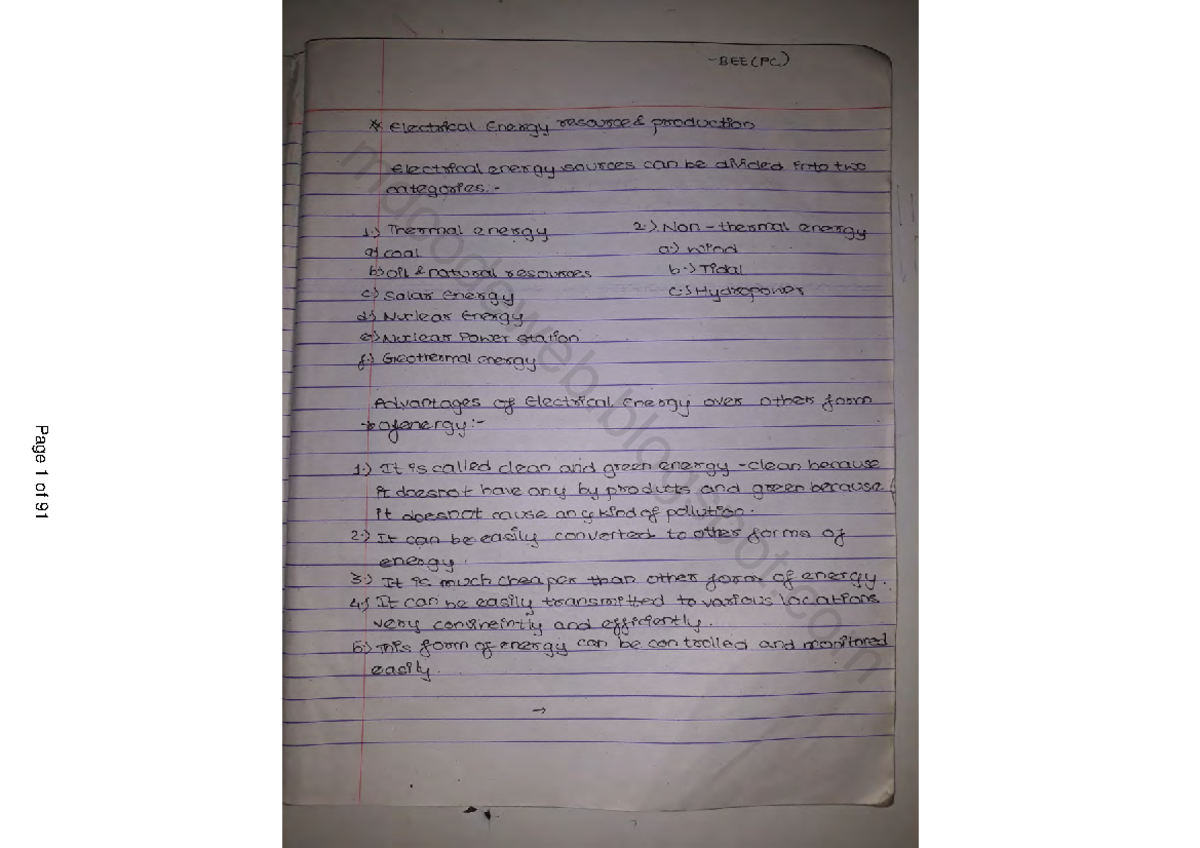 -BEE(PC)
* Electrical Energy resource & production
Electrical energy sources can be divided into two
categories:-
1.) Thermal energy
2.) Non-thermal energy
a) coal
a.) wind
b) oil & natural resources
b.) Tidal
c) Solar energy
c.) Hydropower
d.) Nuclear Energy
e.) Nuclear Power station
f.) Geothermal energy
Advantages of Electrical Energy over other form
of energy:-
1.) It is called clean and green energy - clean because
it doesnot have any by products and green because
it doesnot cause any kind of pollution.
2.) It can be easily converted to other forms of
energy.
3.) It is much cheaper than other form of energy.
4.) It can be easily transmitted to various locations
very and efficiently.
5.) This form of energy can be controlled and monitored
easily.
→
Page 1 of 91
mdcodeweb.blogspot.com